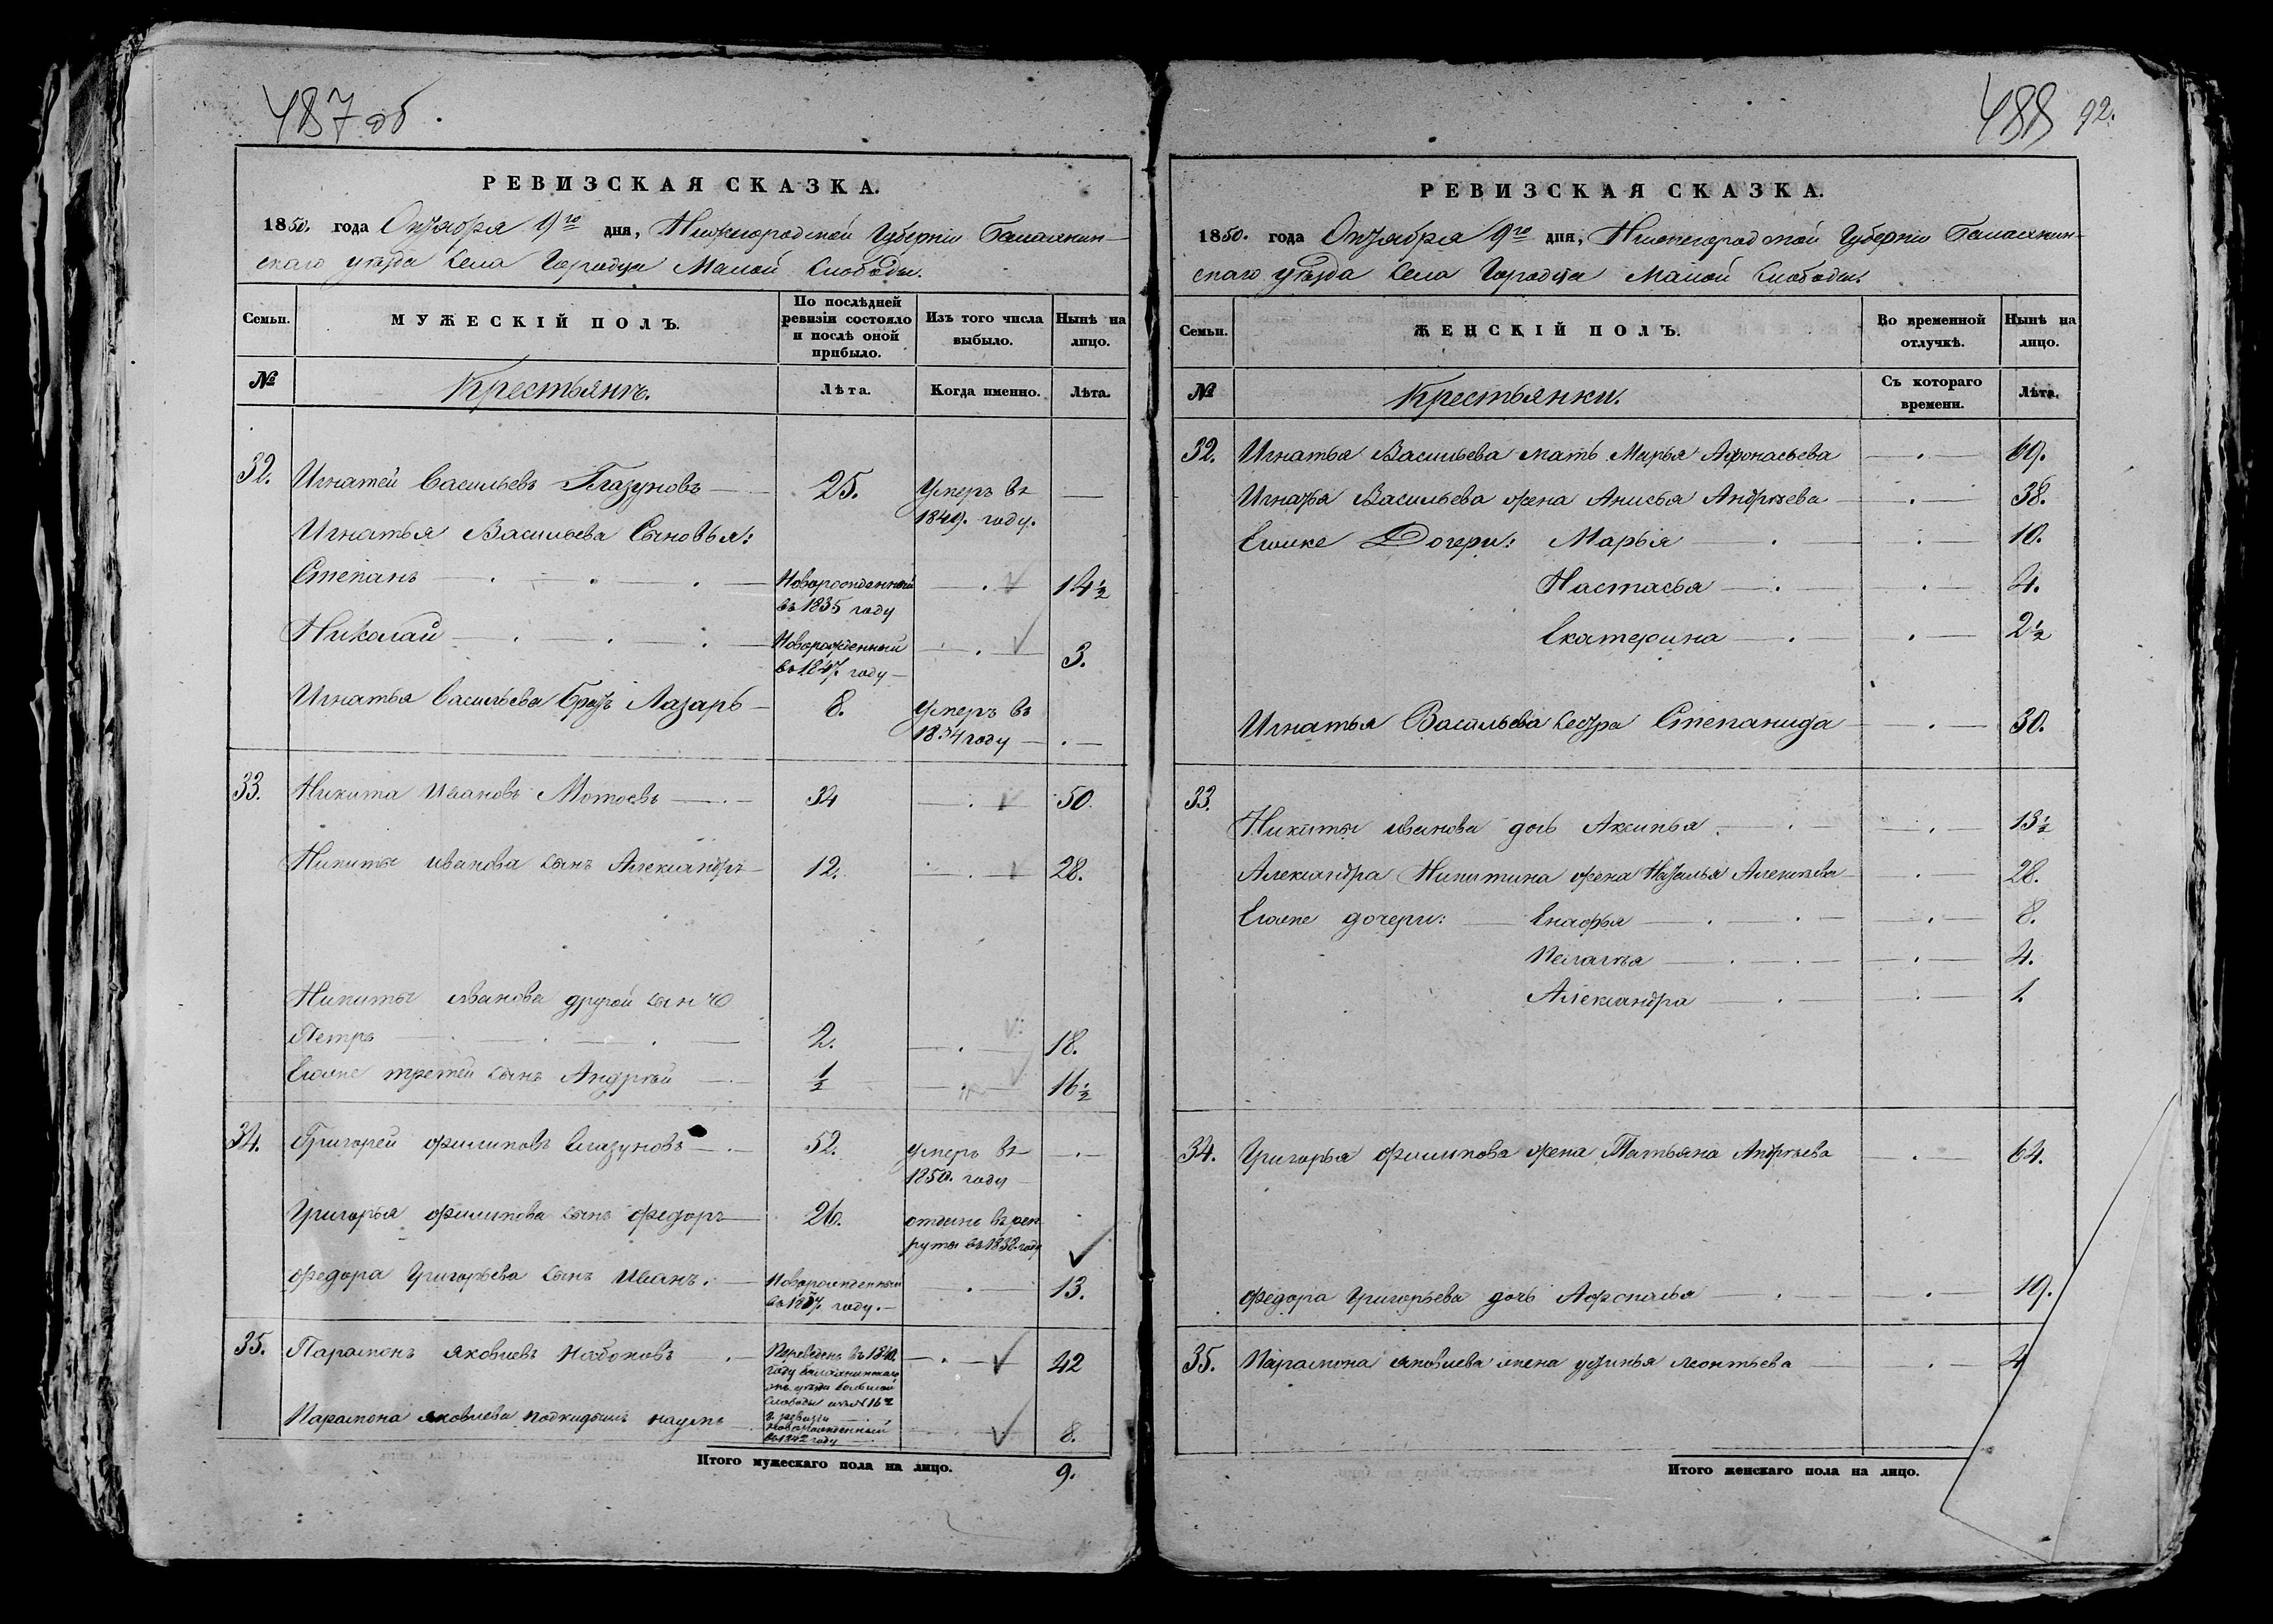 487 об.
РЕВИЗСКАЯ СКАЗКА.
1850. года Октября 9го дня, Нижегородской Губерніи Балахнин-
скаго уѣзда села Городца Малой Слободы.
Семьи. МУЖЕСКІЙ ПОЛЪ. По послѣдней ревизіи состояло и послѣ оной прибыло. Изъ того числа выбыло. Нынѣ на лицо.
№ Крестьянъ. Лѣта. Когда именно. Лѣта.
32. Игнатей Васильевъ Глазуновъ 25. Умеръ въ 1849. году. —
Игнатья Васильева Сыновья:
Степанъ Новорожденный въ 1835 году 14 1/2
Николай Новорожденный въ 1847. году 3.
Игнатья Васильева братъ Лазарь 8. Умеръ въ 1834 году
33. Никита Ивановъ 34 50.
Никиты Иванова сынъ Александръ 12. 28.
Никиты Иванова другой сынъ
Петръ 2. 18.
Егоже третей сынъ Андрѣй 1/2 16 1/2
34. Григорей Филиповъ Глазуновъ 52. умеръ въ 1850. году
Григорья Филипова сынъ Федоръ 26. отданъ въ рекруты въ 1832 году
Федора Григорьева сынъ Иванъ. Новорожденный въ 1837. году. 13.
35. Парамонъ Яковлевъ Набоковъ Переведенъ въ 1840. году 42
Парамона Яковлева подкидышъ Наумъ Новорожденный въ 1842 году 8.
Итого мужескаго пола на лицо. 9.
488 92.
РЕВИЗСКАЯ СКАЗКА.
1850. года Октября 9го дня, Нижегородской Губерніи Балахнин-
скаго уѣзда села Городца Малой Слободы.
Семьи. ЖЕНСКІЙ ПОЛЪ. Во временной отлучкѣ. Нынѣ на лицо.
№ Крестьянки. Съ котораго времени. Лѣта.
32. Игнатья Васильева мать Марья Афонасьева 69.
Игнатья Васильева жена Анисья Андрѣева 38.
Егоже Дочери: Марья 10.
Настасья 4.
Екатерина 2 1/2
Игнатья Васильева сестра Степанида 30.
33.
Никиты Иванова дочь Аксинья 13 1/2
Александра Никитина жена Наталья Алексѣева 28.
Егоже дочери: 8.
Пелагѣя 4.
Александра 1.
34. Григорья Филипова жена Татьяна Андрѣева 64.
Федора Григорьева дочь 19.
35. Парамона Яковлева жена Устинья Леонтьева 4
Итого женскаго пола на лицо.